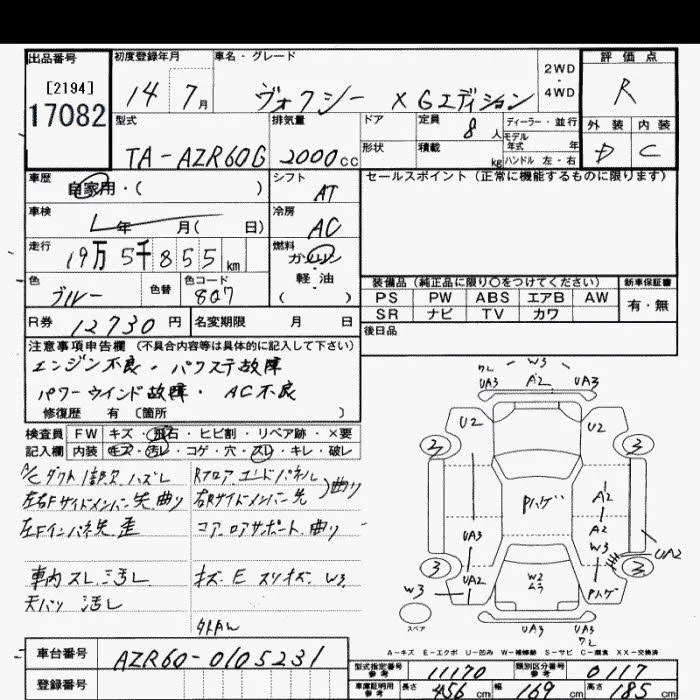 出品番号 [2194] 17082
初度登録年月 14 7月
車名・グレード ヴォクシー X Gエディション
2WD・4WD
評価点 R
外装 D 内装 C
型式 TA-AZR60G
排気量 2000cc
ドア 形状
定員 8人
積載 kg
ディーラー・並行
モデル年式 年
ハンドル 左・右
車歴 自家用・( )
シフト AT
セールスポイント(正常に機能するものに限ります)
車検 年 月( 日)
冷房 AC
走行 19万5千855km
燃料 ガソリン 軽・油 ( )
色 ブルー 色替 色コード 8Q7
装備品(純正品に限り○をつけてください) 新車保証書
PS PW ABS エアB AW 有・無
SR ナビ TV カワ
R券 12730円 名変期限 月 日
後日品
注意事項申告欄(不具合内容等は具体的に記入して下さい)
エンジン不良・パワステ故障
パワーウインド故障・AC不良
修復歴 有 〔箇所 〕
検査員 FW キズ・飛石・ヒビ割・リペア跡・×要
記入欄 内装 キズ・汚レ・コゲ・穴・スレ・キレ・破レ
A/Cダクト1部欠 ハズレ Rフロア エンドパネル
左右Fサイドメンバー先曲り 右Rサイドメンバー先 曲り
左Fインパネ先歪 コア ロアサポート 曲り
車内スレ 汚レ キズ E スリキズ W3
天バリ 汚レ
W3
ワレ UA3 A2 UA3
U2 U2
2 2
Pハゲ A2
A2
UA3 W3
UA2
3 3
W3 UA2 W2 ムラ Pハゲ
スペア
UA3 UA3 ワレ
A-キズ E-エクボ U-凹み W-補修跡 S-サビ C-腐食 XX-交換済
車台番号 AZR60-0105231
型式指定番号 参考 11170 類別区分番号 参考 0117
登録番号
車庫証明用 参考 長さ 456cm 幅 169cm 高さ 185cm